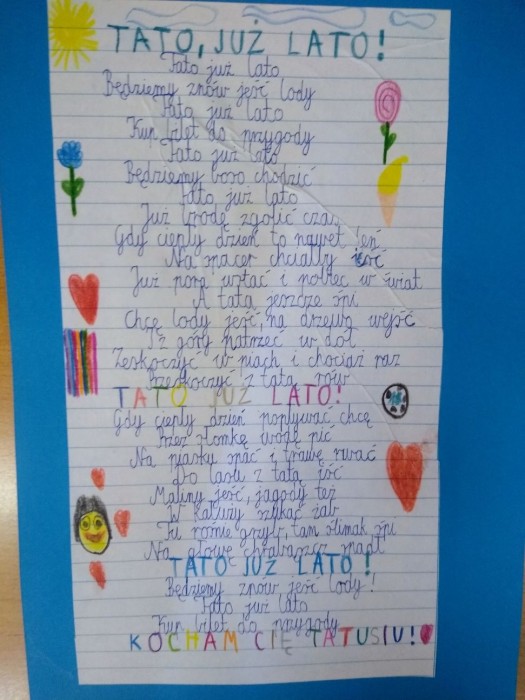 TATO, JUŻ LATO!
Tato już lato
Będziemy znów jeść lody
Tato już lato
Kup bilet do przygody
Tato już lato
Będziemy boso chodzić
Tato już lato
Już brodę zgolić czas
Gdy ciepły dzień to nawet leń
Na spacer chciałby iść
Już pora wstać i pobiec w świat
A tata jeszcze śpi
Chcę lody jeść, na drzewo wejść
I z góry patrzeć w dół
Zeskoczyć w piach i chociaż raz
Przeskoczyć z tatą rów
TATO JUŻ LATO!
Gdy ciepły dzień popływać chcę
Przez słomkę wodę pić
Na piasku spać i trawę rwać
Do lasu z tatą iść
Maliny jeść, jagody też
W kałuży szukać żab
Tu rośnie grzyb, tam ślimak śpi
Na głowę chrabąszcz spadł
TATO JUŻ LATO!
Będziemy znów jeść lody!
Tato już lato
Kup bilet do przygody
KOCHAM CIĘ TATUSIU!